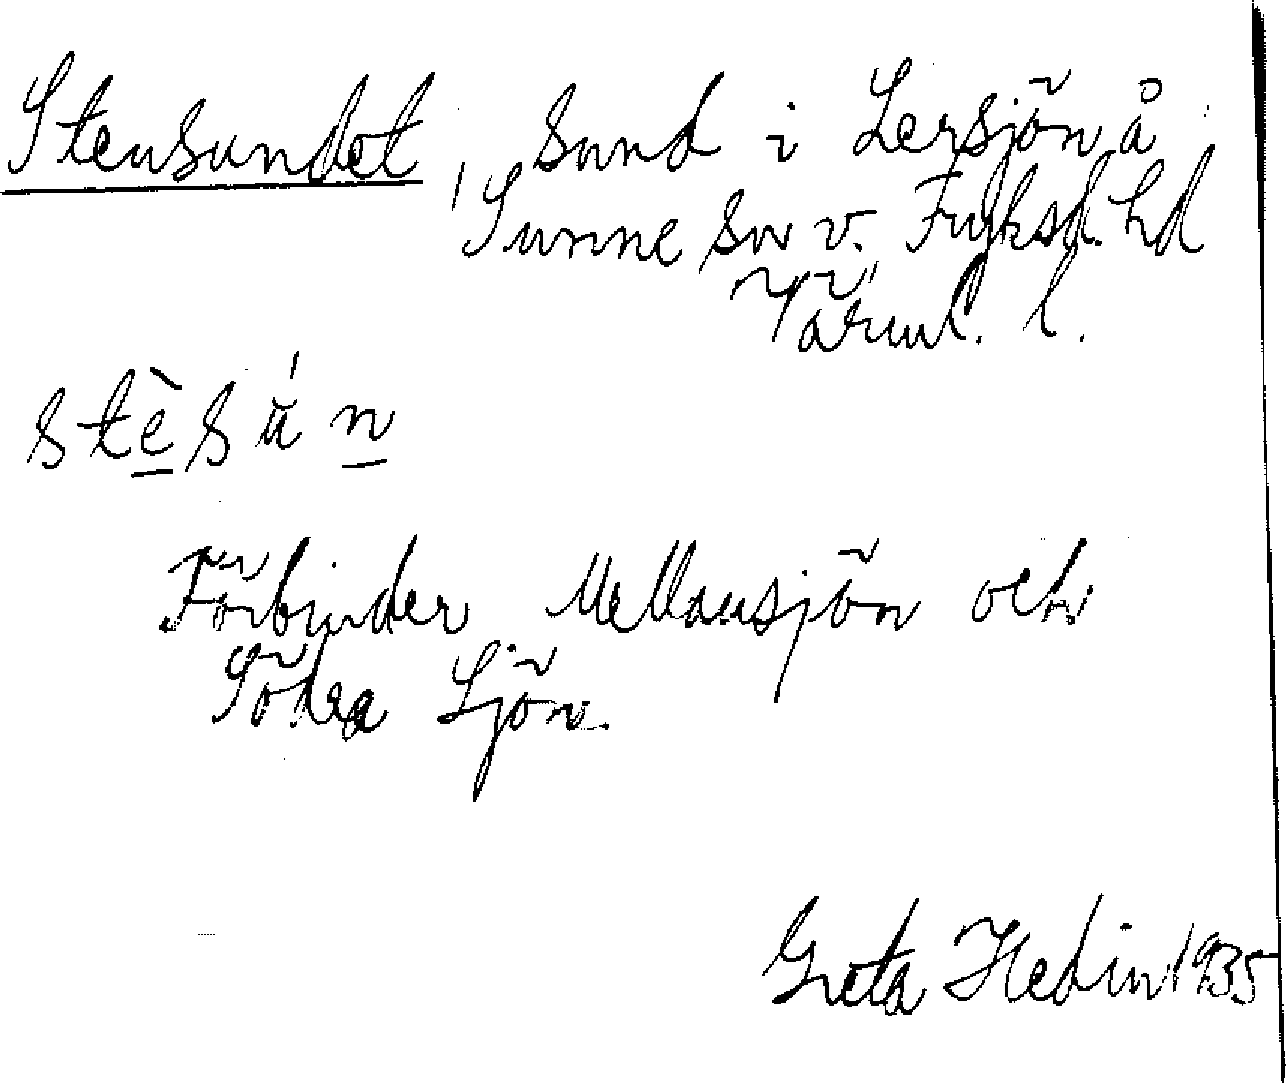 Stensundet, sund i Lersjön å
Sunne sn v. Fryksd. hd
Värml. l.
stèsún
Förbinder Mellansjön och
Södra Sjön.
Greta Hedin 1935